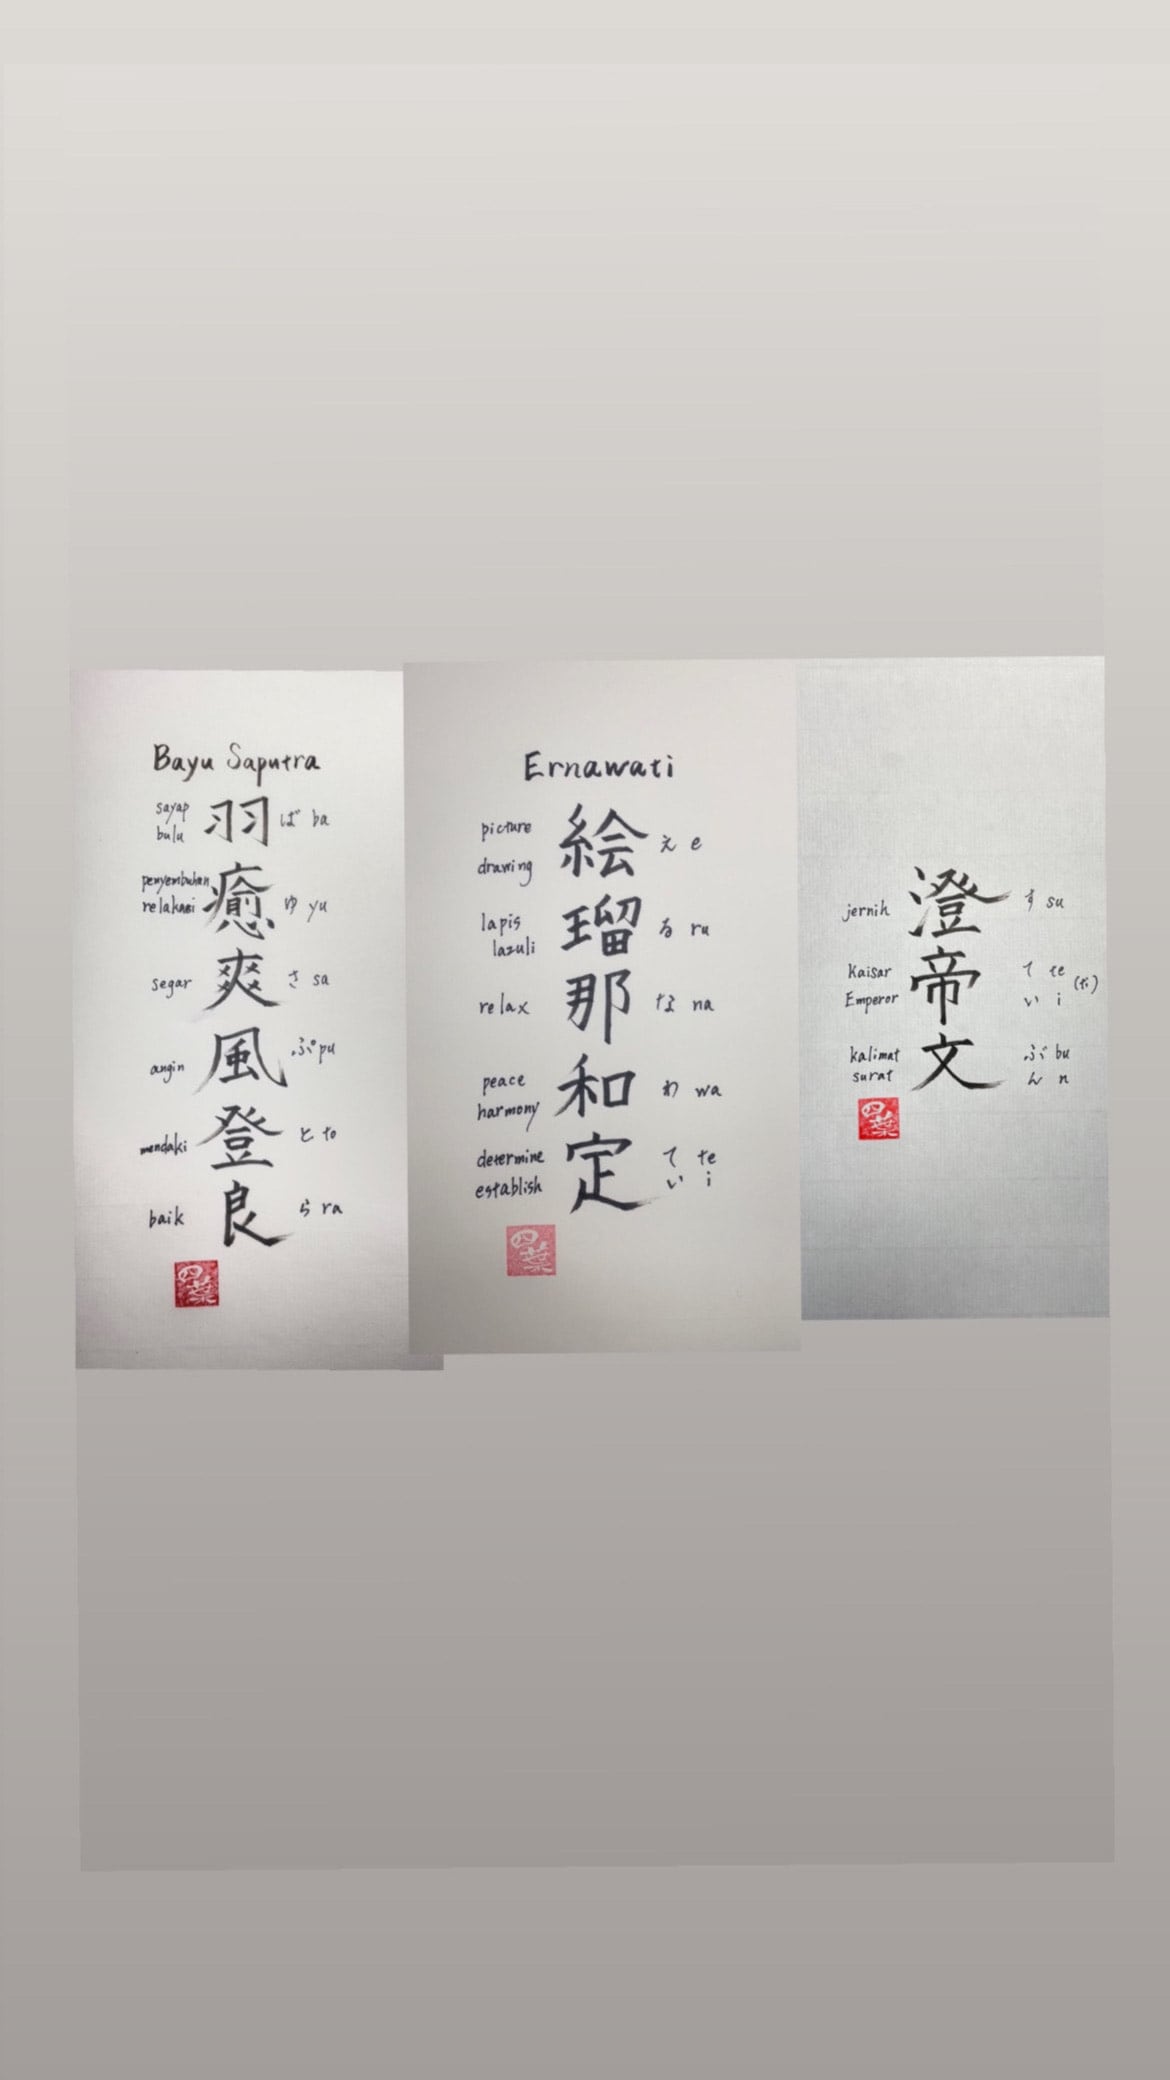 Bayu Saputra
sayap bulu 羽 ば ba
penyembuhan relaksasi 癒 ゆ yu
segar 爽 さ sa
angin 風 ぷ pu
mendaki 登 と to
baik 良 ら ra
四葉
Ernawati
picture drawing 絵 え e
lapis lazuli 瑠 る ru
relax 那 な na
peace harmony 和 わ wa
determine establish 定 てい te i
四葉
jernih 澄 す su
Kaisar Emperor 帝 てい te i (ti)
kalimat surat 文 ぶん bu n
四葉